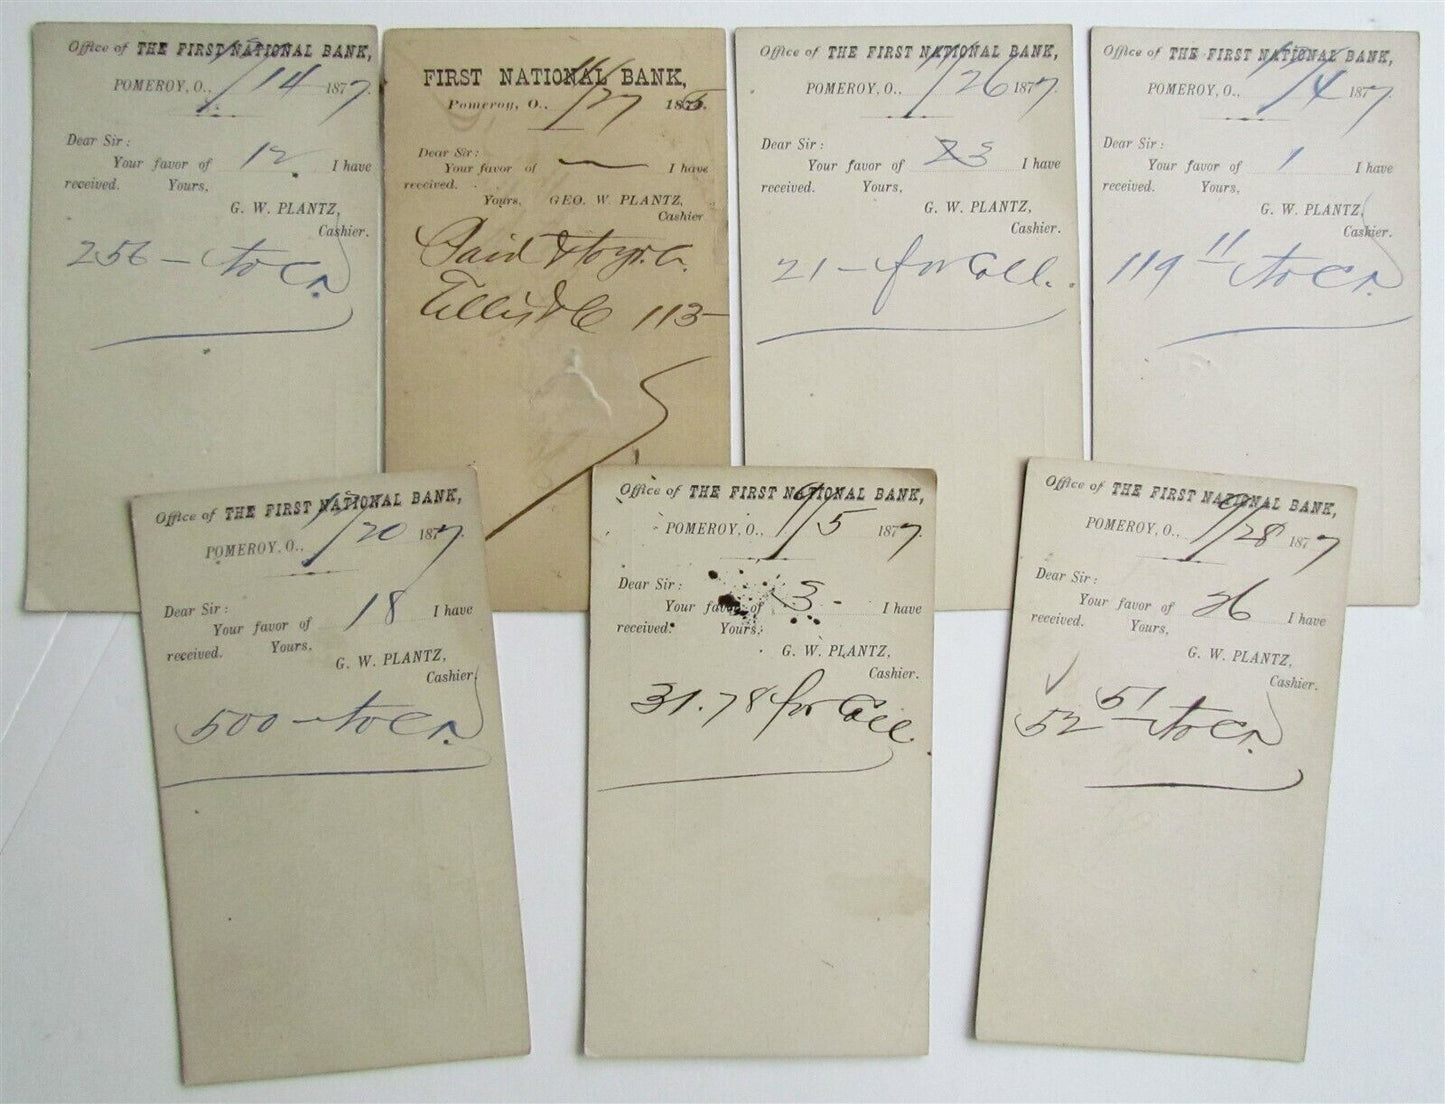 Office of THE FIRST NATIONAL BANK,
POMEROY, O., 1/14 1877.
Dear Sir :
Your favor of 12 I have
received. Yours,
G. W. PLANTZ,
Cashier.
256 — to Cr.
FIRST NATIONAL BANK,
Pomeroy, O., 11/27 187
Dear Sir :
Your favor of — I have
received.
Yours, GEO. W. PLANTZ,
Cashier
Paid
Ellis & Co 113 —
Office of THE FIRST NATIONAL BANK,
POMEROY, O., 1/26 1877.
Dear Sir :
Your favor of 23 I have
received. Yours,
G. W. PLANTZ,
Cashier.
21 — for Coll.
Office of THE FIRST NATIONAL BANK,
POMEROY, O., 1/4 1877
Dear Sir :
Your favor of 1 I have
received. Yours,
G. W. PLANTZ,
Cashier.
119 11 to Cr.
Office of THE FIRST NATIONAL BANK,
POMEROY, O., 1/20 1877.
Dear Sir :
Your favor of 18 I have
received. Yours,
G. W. PLANTZ,
Cashier.
500 — to Cr.
Office of THE FIRST NATIONAL BANK,
POMEROY, O., 1/5 1877.
Dear Sir :
Your favor of 3 - I have
received. Yours,
G. W. PLANTZ,
Cashier.
31.78 for Coll.
Office of THE FIRST NATIONAL BANK,
POMEROY, O., 1/28 1877
Dear Sir :
Your favor of 26 I have
received. Yours,
G. W. PLANTZ,
Cashier.
52 51 to Cr.